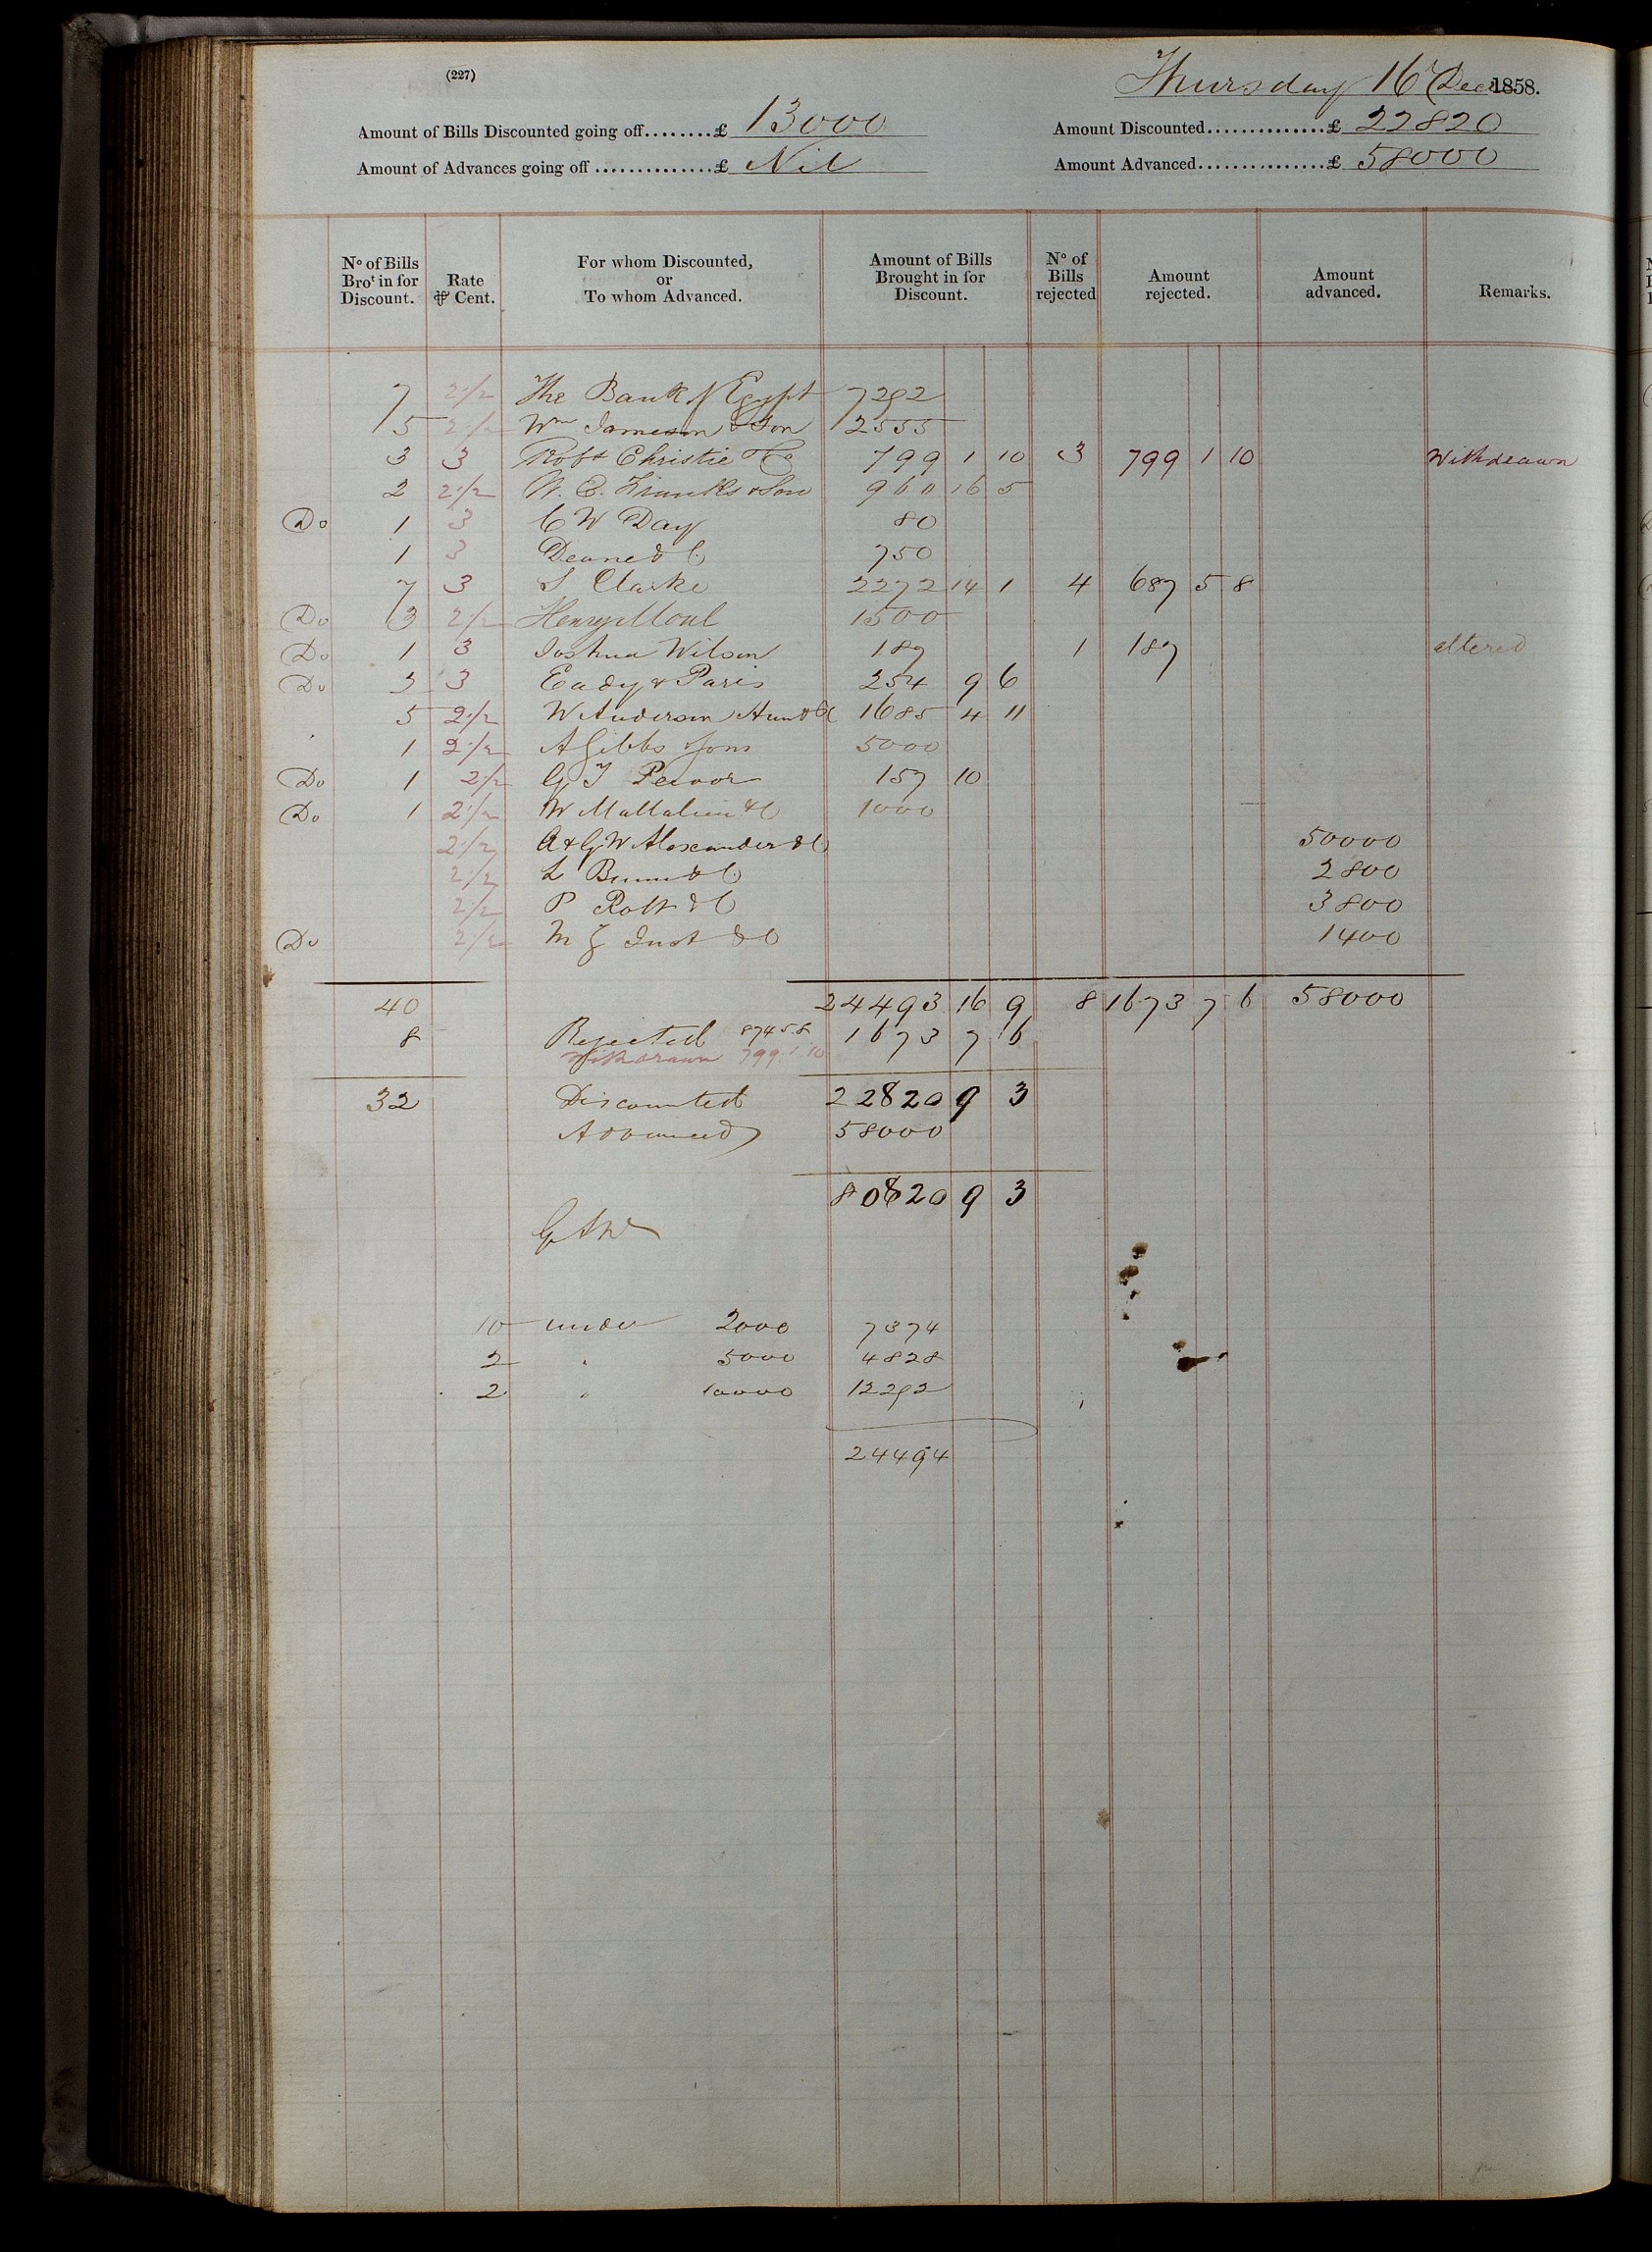 (227)
Thursday 16 Decr 1858.
Amount of Bills Discounted going off........£ 13000
Amount Discounted...............£ 22820
Amount of Advances going off ..............£ Nil
Amount Advanced................£ 58000
No of Bills Brot in for Discount. Rate ⅌ Cent. For whom Discounted, or To whom Advanced. Amount of Bills Brought in for Discount. No of Bills rejected Amount rejected. Amount advanced. Remarks.
7 2½ The Bank of Egypt 7292
5 2½ Wm Jameson & Son 2555
3 3 Robt Christie & Co 799 1 10 3 799 1 10 Withdrawn
2 2½ W. C. Franks & Son 960 16 5
Do 1 3 C W Day 80
1 3 Deane & C 750
7 3 S Clarke 2272 14 1 4 687 5 8
Do 3 2½ Henry Moul 1500
Do 1 3 Joshua Wilson 187 1 187 altered
Do 3 3 Eady & Paris 254 9 6
5 2½ W Anderson Hun & C 1685 4 11
1 2½ A Gibbs & Sons 5000
Do 1 2½ G T 157 10
Do 1 2½ W & C 1000
2½ A & G W Alexander & C 50000
2½ L & C 2800
2½ P Rolt & C 3800
Do 2½ M Z Just & C 1400
40 24493 16 9 8 1673 7 6 58000
8 Rejected 874 5 8 1673 7 6
Withdrawn 799.1.10
32 Discounted 22820 9 3
Advanced 58000
80820 9 3
10 under 2000 7374
2 " 5000 4828
2 " 10000 12292
24494